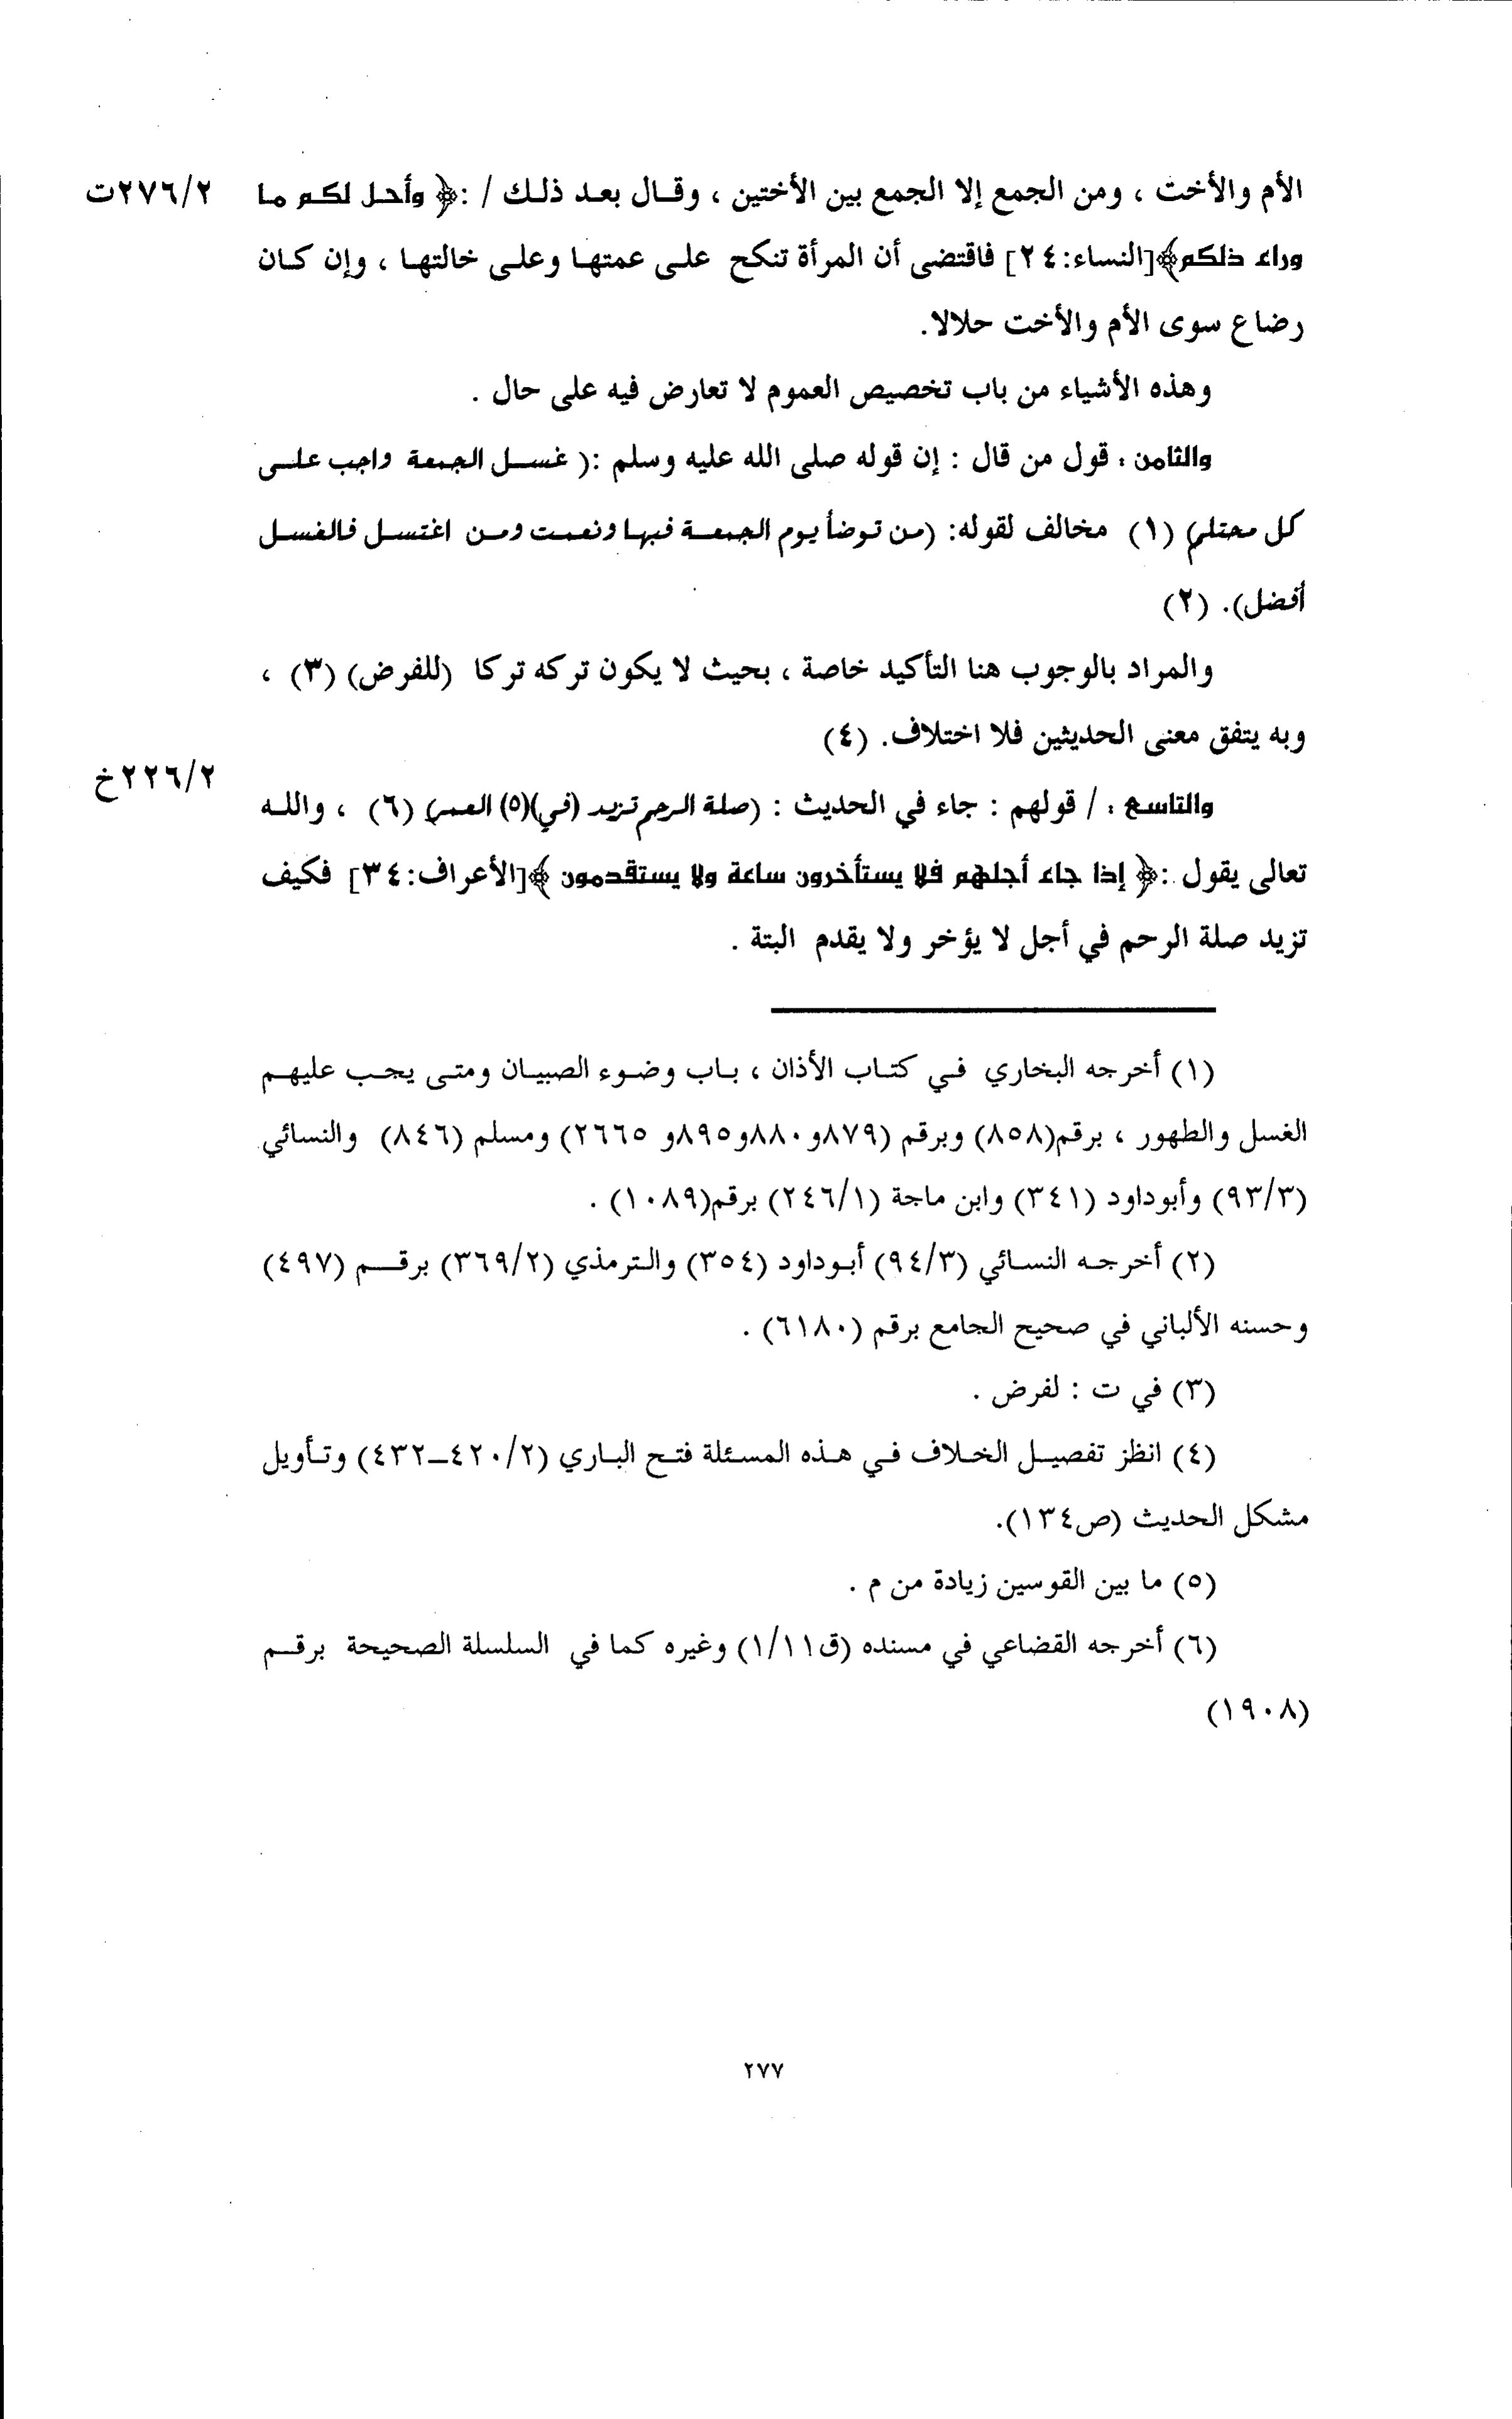 الأم والأخت ، ومن الجمع إلا الجمع بين الأختين ، وقال بعد ذلك / :﴿ وأحل لكم ما ٢٧٦/٢ت
وراء ذلكم﴾[النساء:٢٤] فاقتضى أن المرأة تنكح على عمتها وعلى خالتها ، وإن كان
رضاع سوى الأم والأخت حلالا.
وهذه الأشياء من باب تخصيص العموم لا تعارض فيه على حال .
والثامن : قول من قال : إن قوله صلى الله عليه وسلم :( غسل الجمعة واجب على
كل محتلم) (١) مخالف لقوله: (من توضأ يوم الجمعة فبها ونعمت ومن اغتسل فالغسل
أفضل). (٢)
والمراد بالوجوب هنا التأكيد خاصة ، بحيث لا يكون تركه تركا (للفرض) (٣) ،
وبه يتفق معنى الحديثين فلا اختلاف. (٤)
٢٢٦/٢خ
والتاسع : / قولهم : جاء في الحديث : (صلة الرحم تزيد (في)(٥) العمر) (٦) ، والله
تعالى يقول :﴿ إذا جاء أجلهم فلا يستأخرون ساعة ولا يستقدمون ﴾[الأعراف:٣٤] فكيف
تزيد صلة الرحم في أجل لا يؤخر ولا يقدم البتة .
(١) أخرجه البخاري في كتاب الأذان ، باب وضوء الصبيان ومتى يجب عليهم
الغسل والطهور ، برقم(٨٥٨) وبرقم (٨٧٩و٨٨٠و٨٩٥و ٢٦٦٥) ومسلم (٨٤٦) والنسائي
(٩٣/٣) وأبوداود (٣٤١) وابن ماجة (٢٤٦/١) برقم(١٠٨٩) .
(٢) أخرجه النسائي (٩٤/٣) أبوداود (٣٥٤) والترمذي (٣٦٩/٢) برقم (٤٩٧)
وحسنه الألباني في صحيح الجامع برقم (٦١٨٠) .
(٣) في ت : لفرض .
(٤) انظز تفصيل الخلاف في هذه المسئلة فتح الباري (٤٢٠/٢–٤٣٢) وتأويل
مشكل الحديث (ص١٣٤).
(٥) ما بين القوسين زيادة من م .
(٦) أخرجه القضاعي في مسنده (ق١/١١) وغيره كما في السلسلة الصحيحة برقم
(١٩٠٨)
٢٧٧